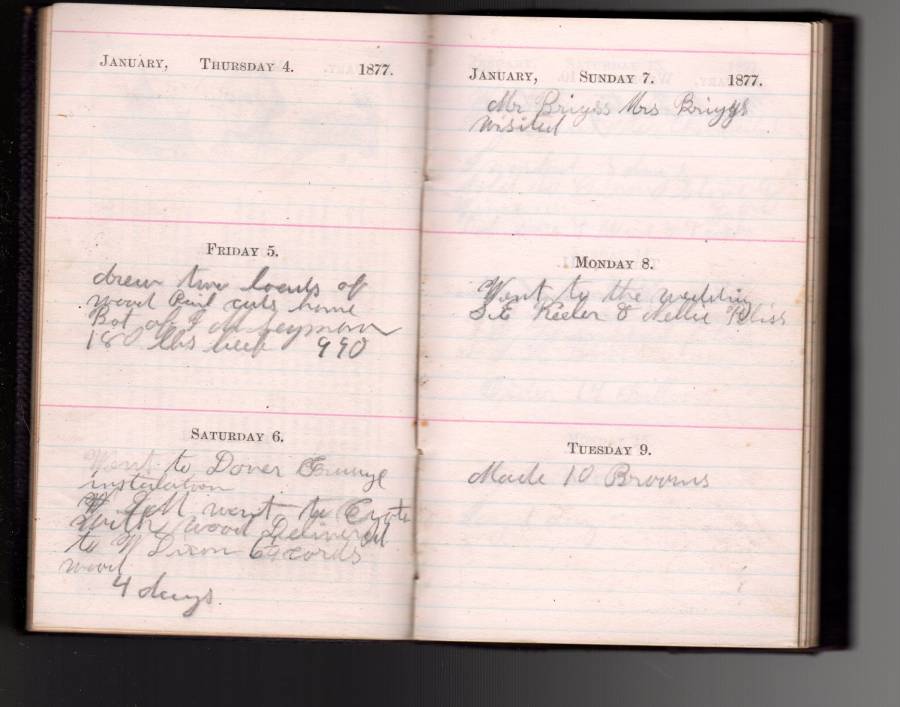 January, Thursday 4. 1877.
Friday 5.
drew two loads of
wood Paid cuts home
Bot of
18 lbs beef 990
Saturday 6.
Went to Dover Grange
instalation
went to
with wood Delivered
to W Dixon 6 cords
wood
4 days.
January, Sunday 7. 1877.
Mr Briggs Mrs Briggs
visited
Monday 8.
Went to the wedding
S.E Keeler & Nellie Bliss
Tuesday 9.
Made 10 Brooms